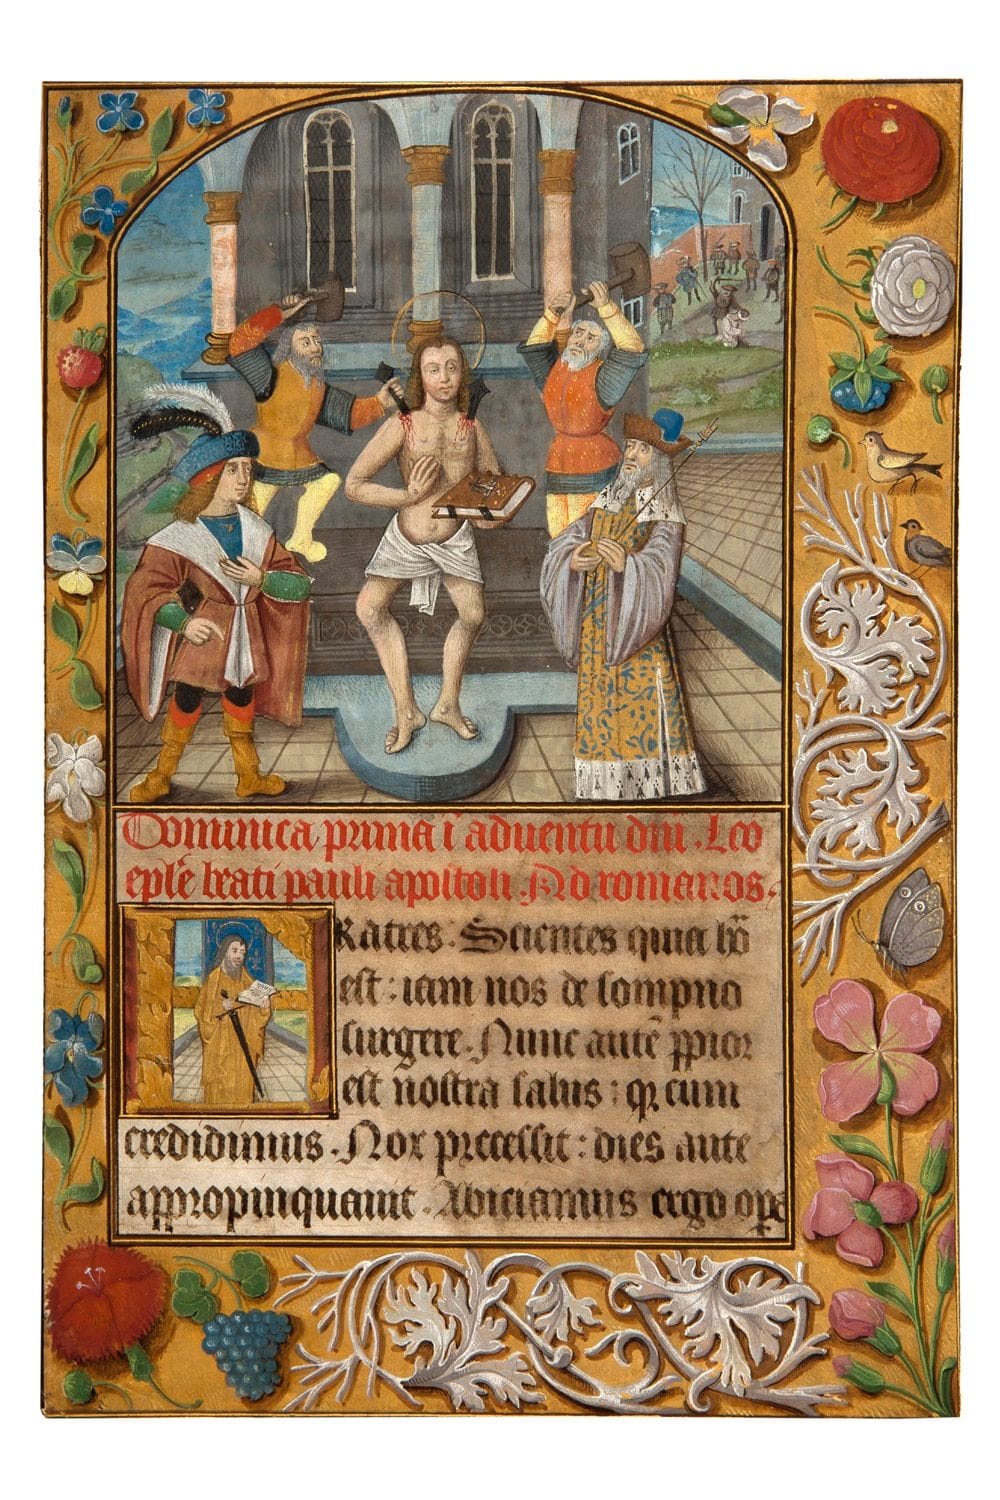 Dominica prima ī aduentu dn̄i. Lcō
eplē beati pauli apostoli. Ad romanos.
Ratres. Scientes quia ho᷑
est: iam nos de sompno
surgere. Nunc autē ꝓpior
est nostra salus: qȝ cum
credidimus. Nox precessit: dies aute
appropinquauit. Abiciamus ergo ope